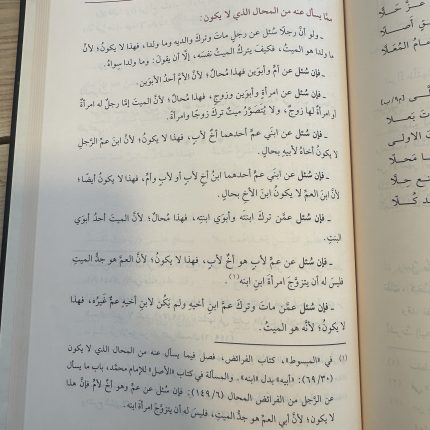 ممّا يسأل عنه من المحال الذي لا يكون:
ـ ولو أنّ رجلًا سُئل عن رجل ماتَ وتركَ والديه وما ولدا، فهذا لا يكونُ؛ لأنّ
ما ولدا هو الميتُ، فكيف يتركُ الميتُ نفسَه، إلّا أن يقولَ: وما ولدا سِواهُ.
ـ فإن سُئل عن أمّ وأبوَين فهذا مُحالٌ؛ لأنّ الأمّ أحدُ الأبوَين.
ـ فإن سُئل عن امرأةٍ وأبوَين وزوجٍ، فهذا مُحالٌ؛ لأنّ الميتَ إمّا رجلٌ له امرأةٌ
أو امرأةٌ لها زوجٌ، ولا يُتصَوَّرُ ميتٌ تركَ زوجًا وامرأةً.
ـ فإن سُئل عن ابنَي عمٍّ أحدهما أخٌ لأبٍ، فهذا لا يكونُ؛ لأنّ ابنَ عمِّ الرَّجلِ
لا يكونُ أخاهُ لأبيهِ بحالٍ.
ـ فإن سُئل عن ابنَي عمٍّ أحدُهما ابنُ أخٍ لأبٍ أو لأبٍ وأمٍّ، فهذا لا يكونُ أيضًا؛
لأنّ ابنَ العمِّ لا يكونُ ابنَ الأخِ بحالٍ.
ـ فإن سُئل عمّن تركَ ابنتَه وأبوَي ابنتِه، فهذا مُحالٌ؛ لأنّ الميتَ أحدُ أبوَي
البنتِ.
ـ فإن سُئل عن عمٍّ لأبٍ هو أخٌ لأبٍ، فهذا لا يكونُ؛ لأنّ العمَّ هو جدُّ الميتِ
فليسَ له أن يتزوَّجَ امرأةَ ابنِه(١).
ـ فإن سُئل عمَّن ماتَ وتركَ عمَّ ابنِ أخيهِ ولم يَكُنْ لابنِ أخيهِ عمٌّ غيرُه، فهذا
لا يكونُ؛ لأنّه هو الميتُ.
(١) في «المبسوط»، كتاب الفرائض، فصل فيما يسأل عنه من المحال الذي لا يكون
(٦٩/٣٠): «أبيه» بدل «ابنه». والمسألة في كتاب «الأصل» للإمام محمّد، باب ما يسأل
عن الرَّجل من الفرائض المحال (١٤٩/٦): فإن سُئل عن عمٍّ وهو أخٌ لأمٍّ فإنّ هذا
لا يكون؛ لأنّ أبي العمّ هو جدُّ الميت، فليس له أن يتزوَّج امرأة ابنه.